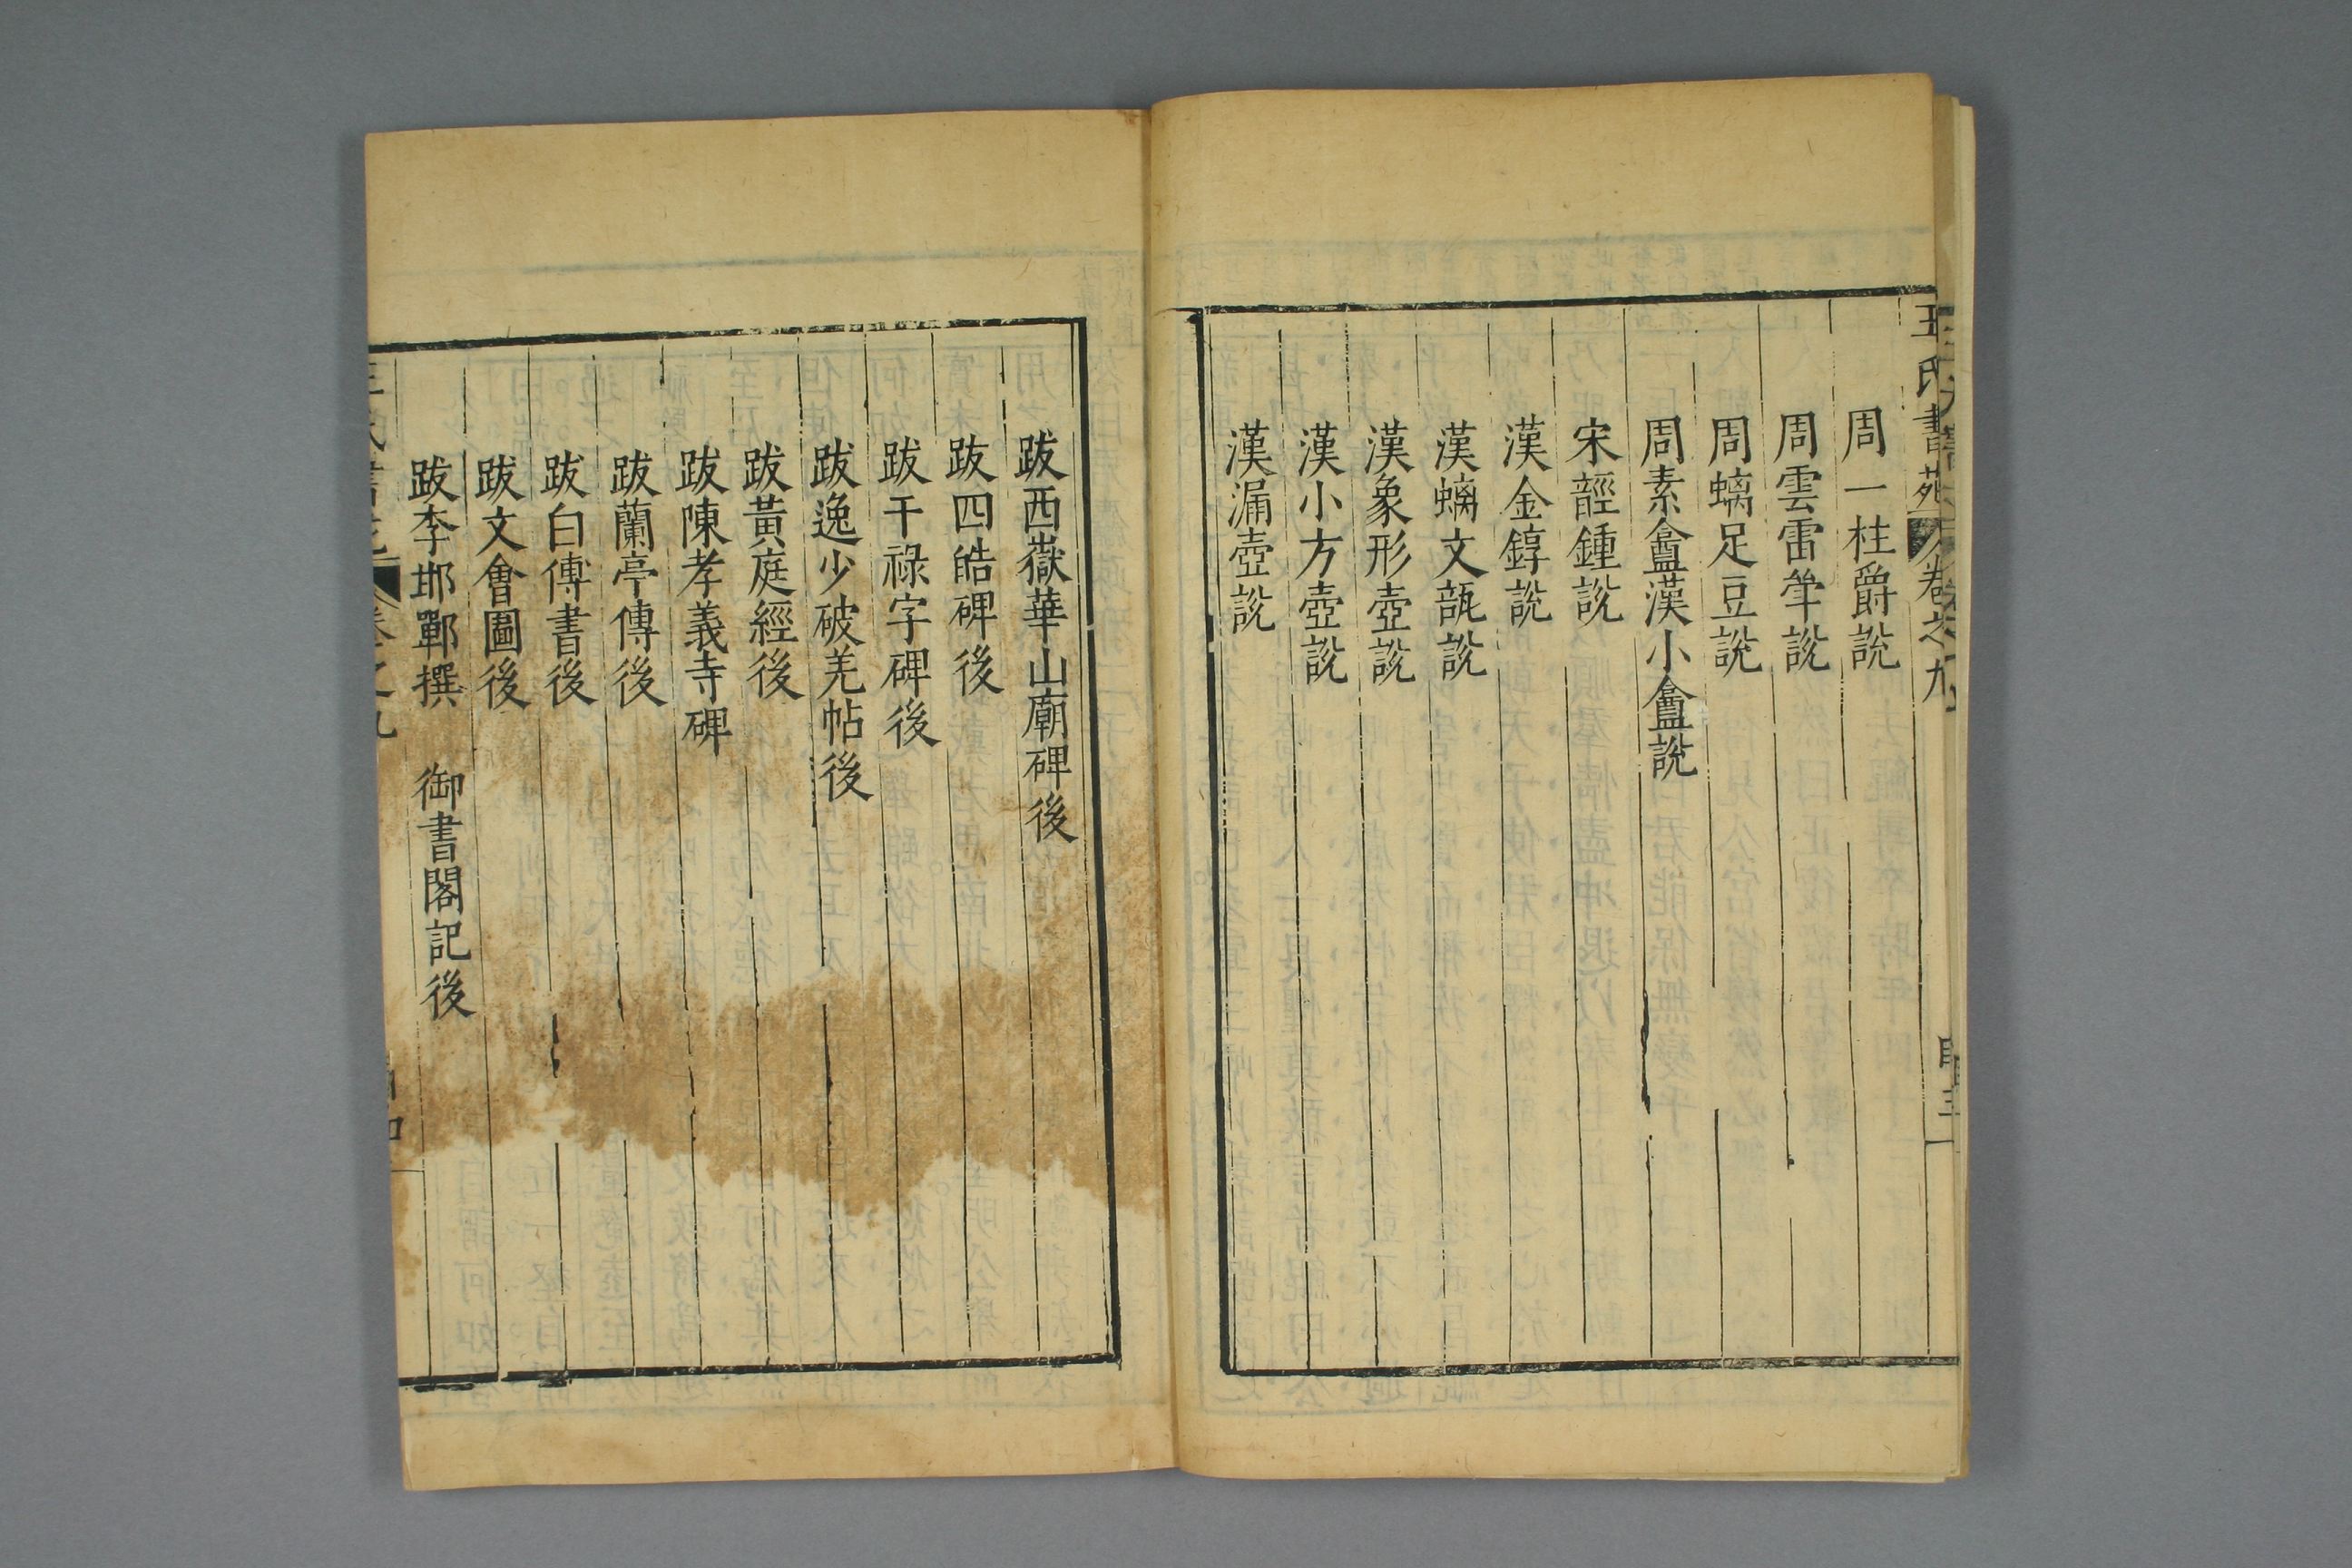 王氏書苑 卷之九
周一柱爵說
周雲雷斝說
周螭足豆說
周素盦漢小盦說
宋䪫鍾說
漢金錞說
漢螭文瓿說
漢象形壺說
漢小方壺說
漢漏壺說
跋西嶽華山廟碑後
跋四皓碑後
跋干祿字碑後
跋逸少破羌帖後
跋黃庭經後
跋陳孝義寺碑
跋蘭亭傳後
跋白傅書後
跋文會圖後
跋李邯鄲撰 御書閣記後